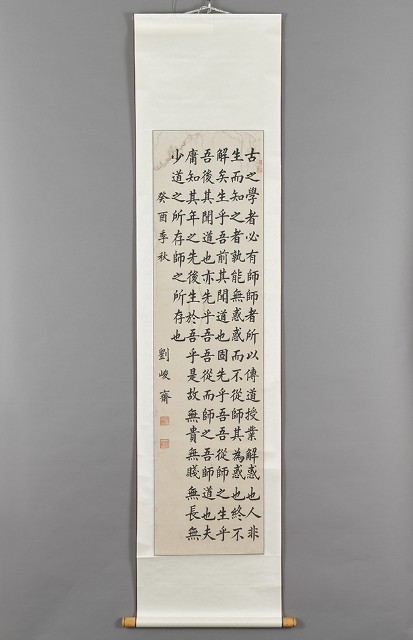 古之學者必有師師者所以傳道授業解惑也人非
生而知之者孰能無惑惑而不從師其為惑也終不
解矣生乎吾前其聞道也固先乎吾吾從師之生乎
吾後其聞道也亦先乎吾吾從而師之吾師道也夫
庸知其年之先後生於吾乎是故無貴無賤無長無
少道之所存師之所存也
癸酉季秋 劉峻齋